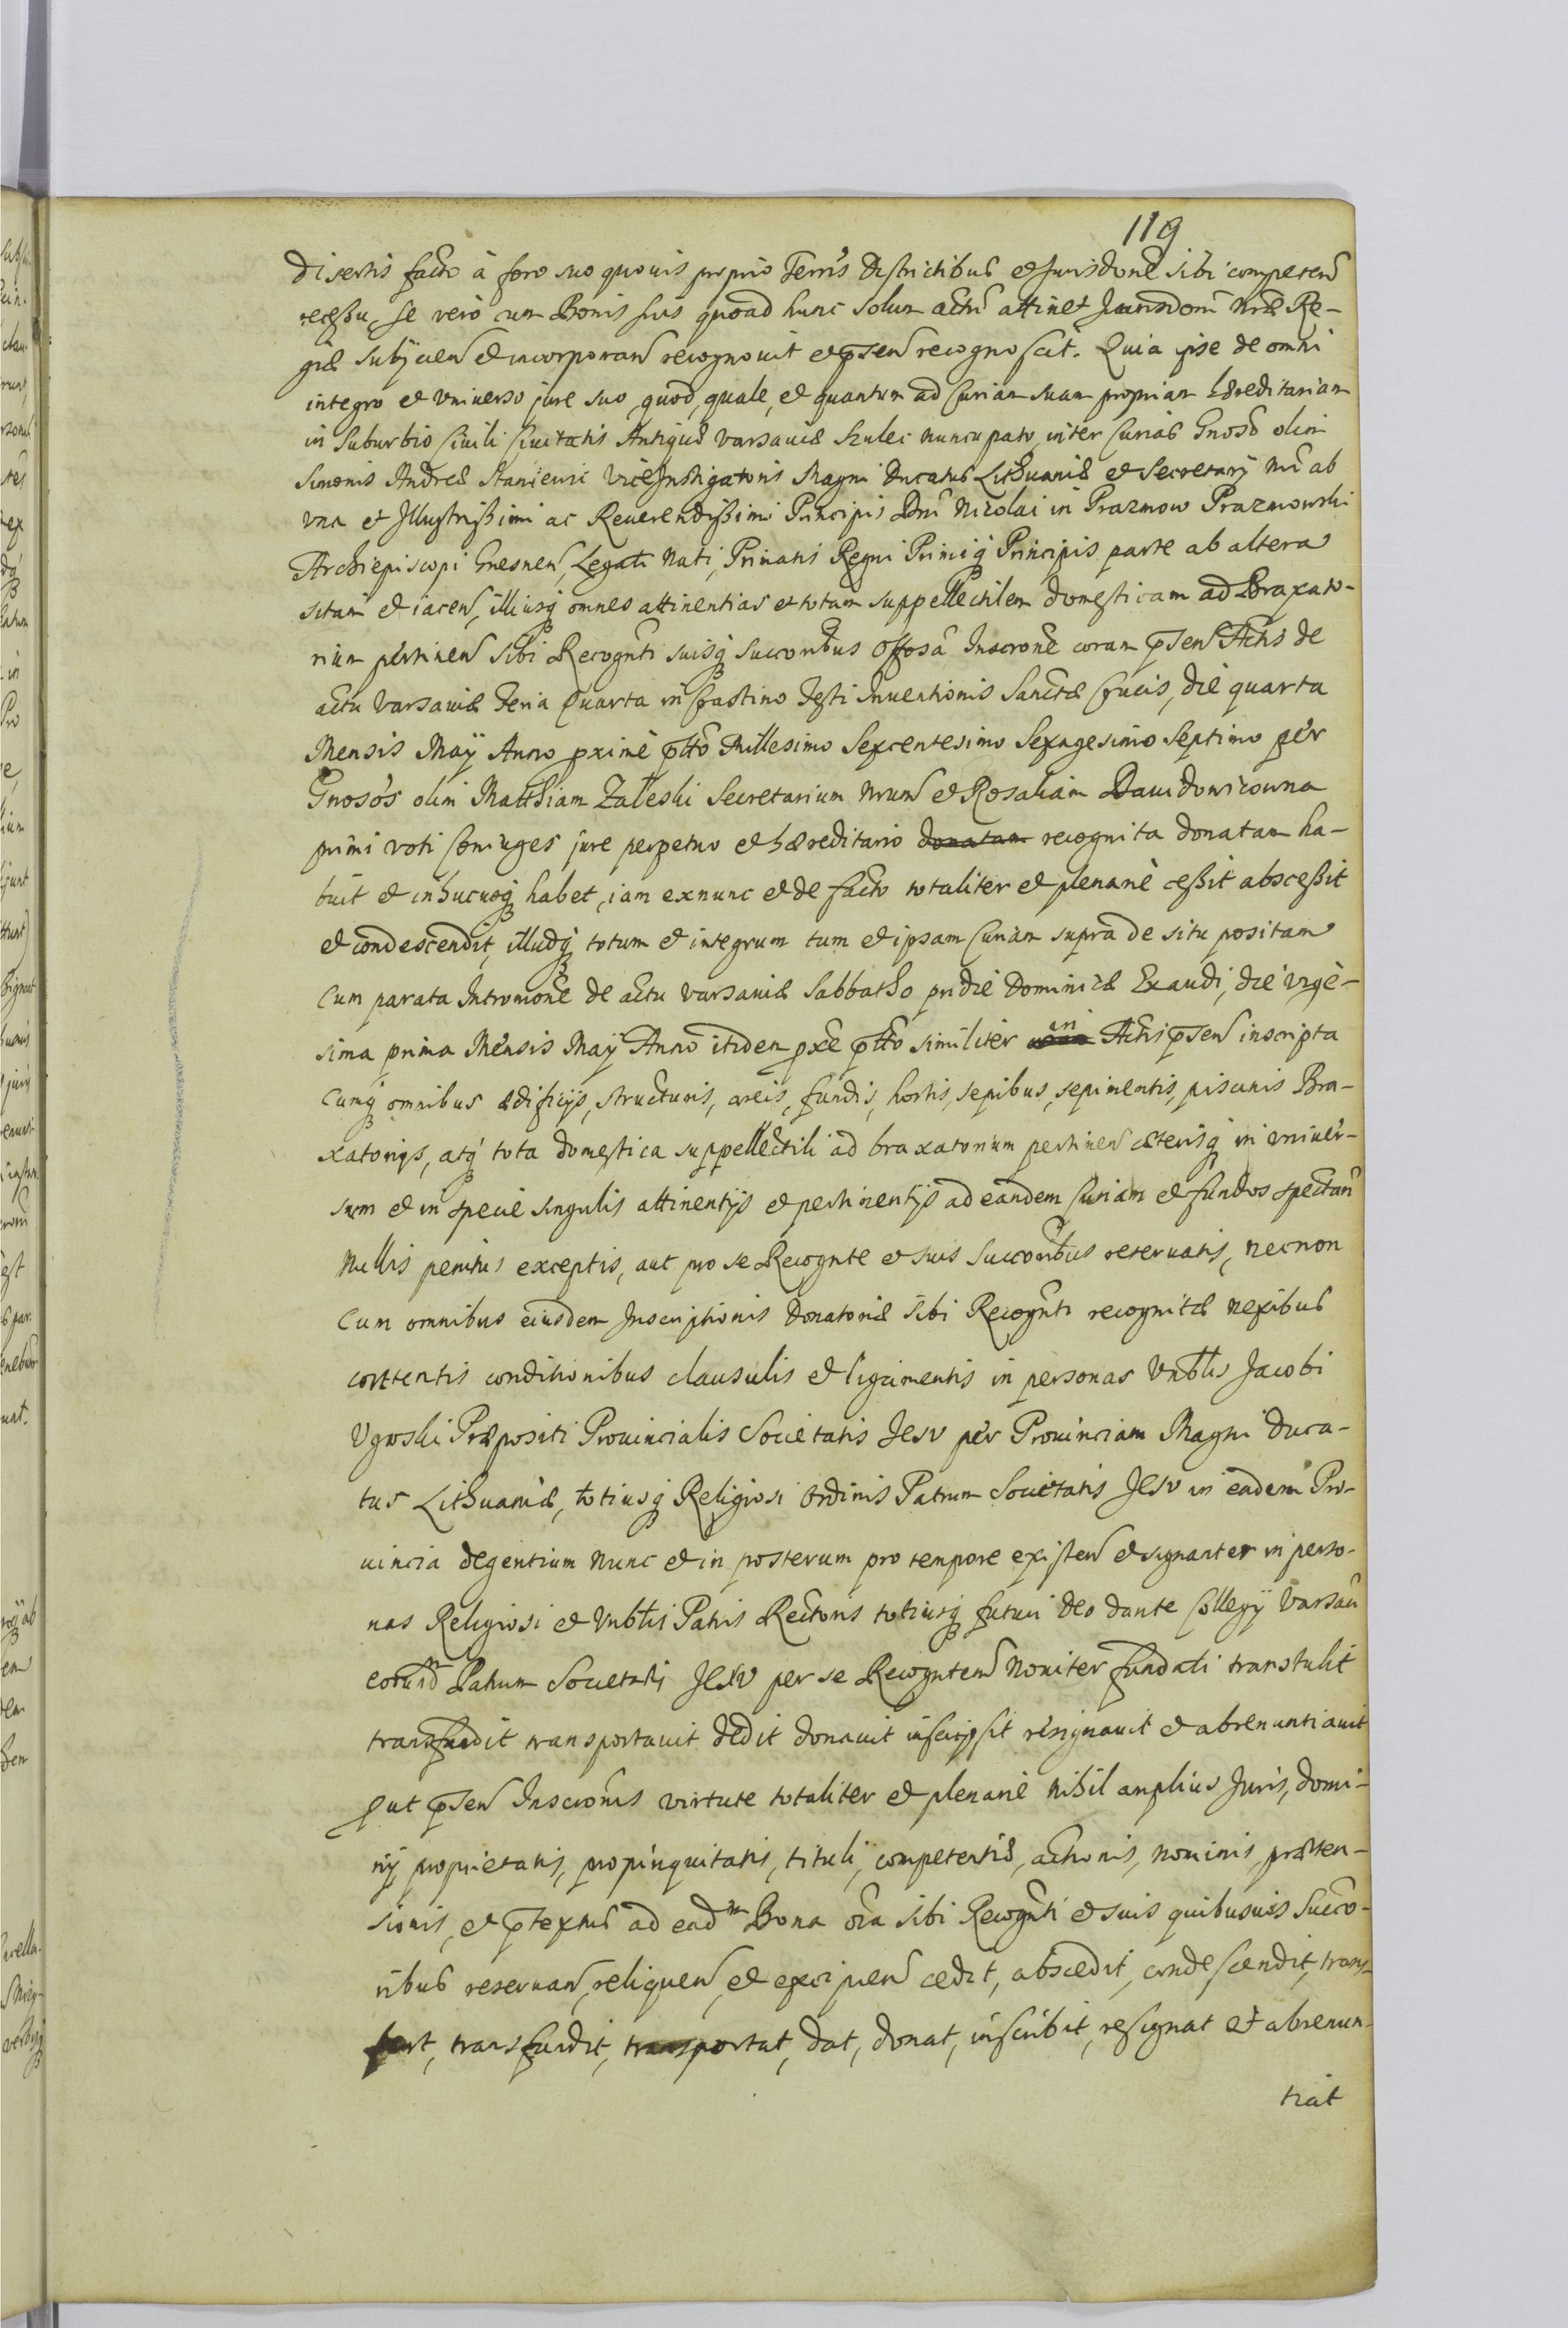 119
disertis facto à foro suo quouis proprio Terris Districtibus et Jurisdone sibi competen
recessu, se vero cum Bonis suis quoad hunc solum actu attinet Jurisdoni nræ Re-
giæ subijcien et incorporan recognouit et pñsen recognoscit. Quia ipse de omni
integro et vniuerso jure suo, quod, quale, et quantum ad Curiam suam propriam hæreditariam
in Suburbio Ciuili Ciuitatis Antiquæ Varsauiæ Szulec nuncupato, inter Curias Gnosd olim
Simonis Andreæ Staniewic ViceInstigatoris Magni Ducatus Lithuaniæ et Secretarij nri ab
vna et Illustrissimi ac Reuerendissimi Principis Dni Nicolai in Prazmow Prazmowski
Archiepiscopi Gnesnen, Legati Nati, Primatis Regni Primiq Principis parte ab altera
sitam et iacen, illiusq omnes attinentias et totam suppellectilem domesticam ad Braxato-
rium pertinen sibi Recognti suisq succoribus Offosa Inscrone coram pñsen Actis de
actu Varsauiæ Feria Quarta in Crastino Festi Inuentionis Sanctæ Crucis, die quarta
Mensis Maÿ Anno proxime ptto Millesimo Sexcentesimo Sexagesimo Septimo per
Gnosos olim Matthiam Zaleski Secretarium nrum et Rosaliam Dawidowicowna
primi voti Coniuges jure perpetuo et hæreditario donatam recognita donatam ha-
buit et inhucusq habet, iam exnunc et de facto totaliter et plenarie cessit abscessit
et condescendit, illudq totum et integrum tum et ipsam Curiam supra de situ positam
Cum parata Intromone de actu Varsauiæ Sabbatho pridie Dominicæ Exaudi, die vige-
sima prima Mensis Maÿ Anno itidem pxe ptto similiter in Actis pñsen inscripta
Cumq omnibus ædificijs, structuris, areis, fundis, hortis, sepibus, sepimentis, piscinis Bra-
xatorijs, atq tota domestica suppellectili ad braxatorium pertinen cæterisq in vniuer-
sum et in specie singulis attinentijs et pertinentijs ad eandem Curiam et fundos spectan
nullis penitus exceptis, aut pro se Recognte et suis succoribus reseruatis, necnon
Cum omnibus eiusdem Inscriptionis donatoriæ sibi Recognti recognitæ nexibus
contentis conditionibus clausulis et ligamentis in personas Vnblis Jacobi
Vgoski Præpositi Prouincialis Societatis Jesv per Prouinciam Magni Duca-
tus Lithuaniæ, totiusq Religiosi Ordinis Patrum Societatis Jesv in eadem Pro-
uincia degentium nunc et in posterum pro tempore existen et signanter in perso-
nas Religiosi et Vnblis Patris Rectoris totiusq futuri deo dante Collegÿ Varsaui
eorund Patrum Societatis Jesv per se Recognten nouiter fundati transtulit
transfudit transportauit dedit donauit inscripsit resignauit et abrenuntiauit
put pñsen Inscronis virtute totaliter et plenarie nihil amplius Juris, domi-
nij, proprietatis, propinquitatis, tituli, competentiæ, actionis, nominis, præten-
sionis, et ptextus ad ead m Bona oia sibi Recognti et suis quibusuis Succo-
ribus reseruan, reliquen, et excipien cedit, abscedit, condescendit, trans-
fert, transfundit, transportat, dat, donat, inscribit, resignat et abrenun-
tiat